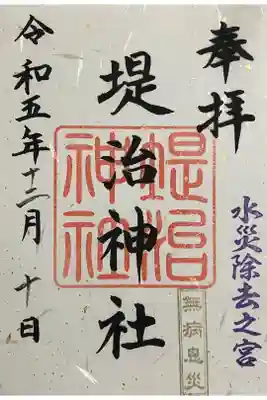 奉拝
水災除去之宮
堤治神社
堤治神社
無病息災
令和五年十二月十日